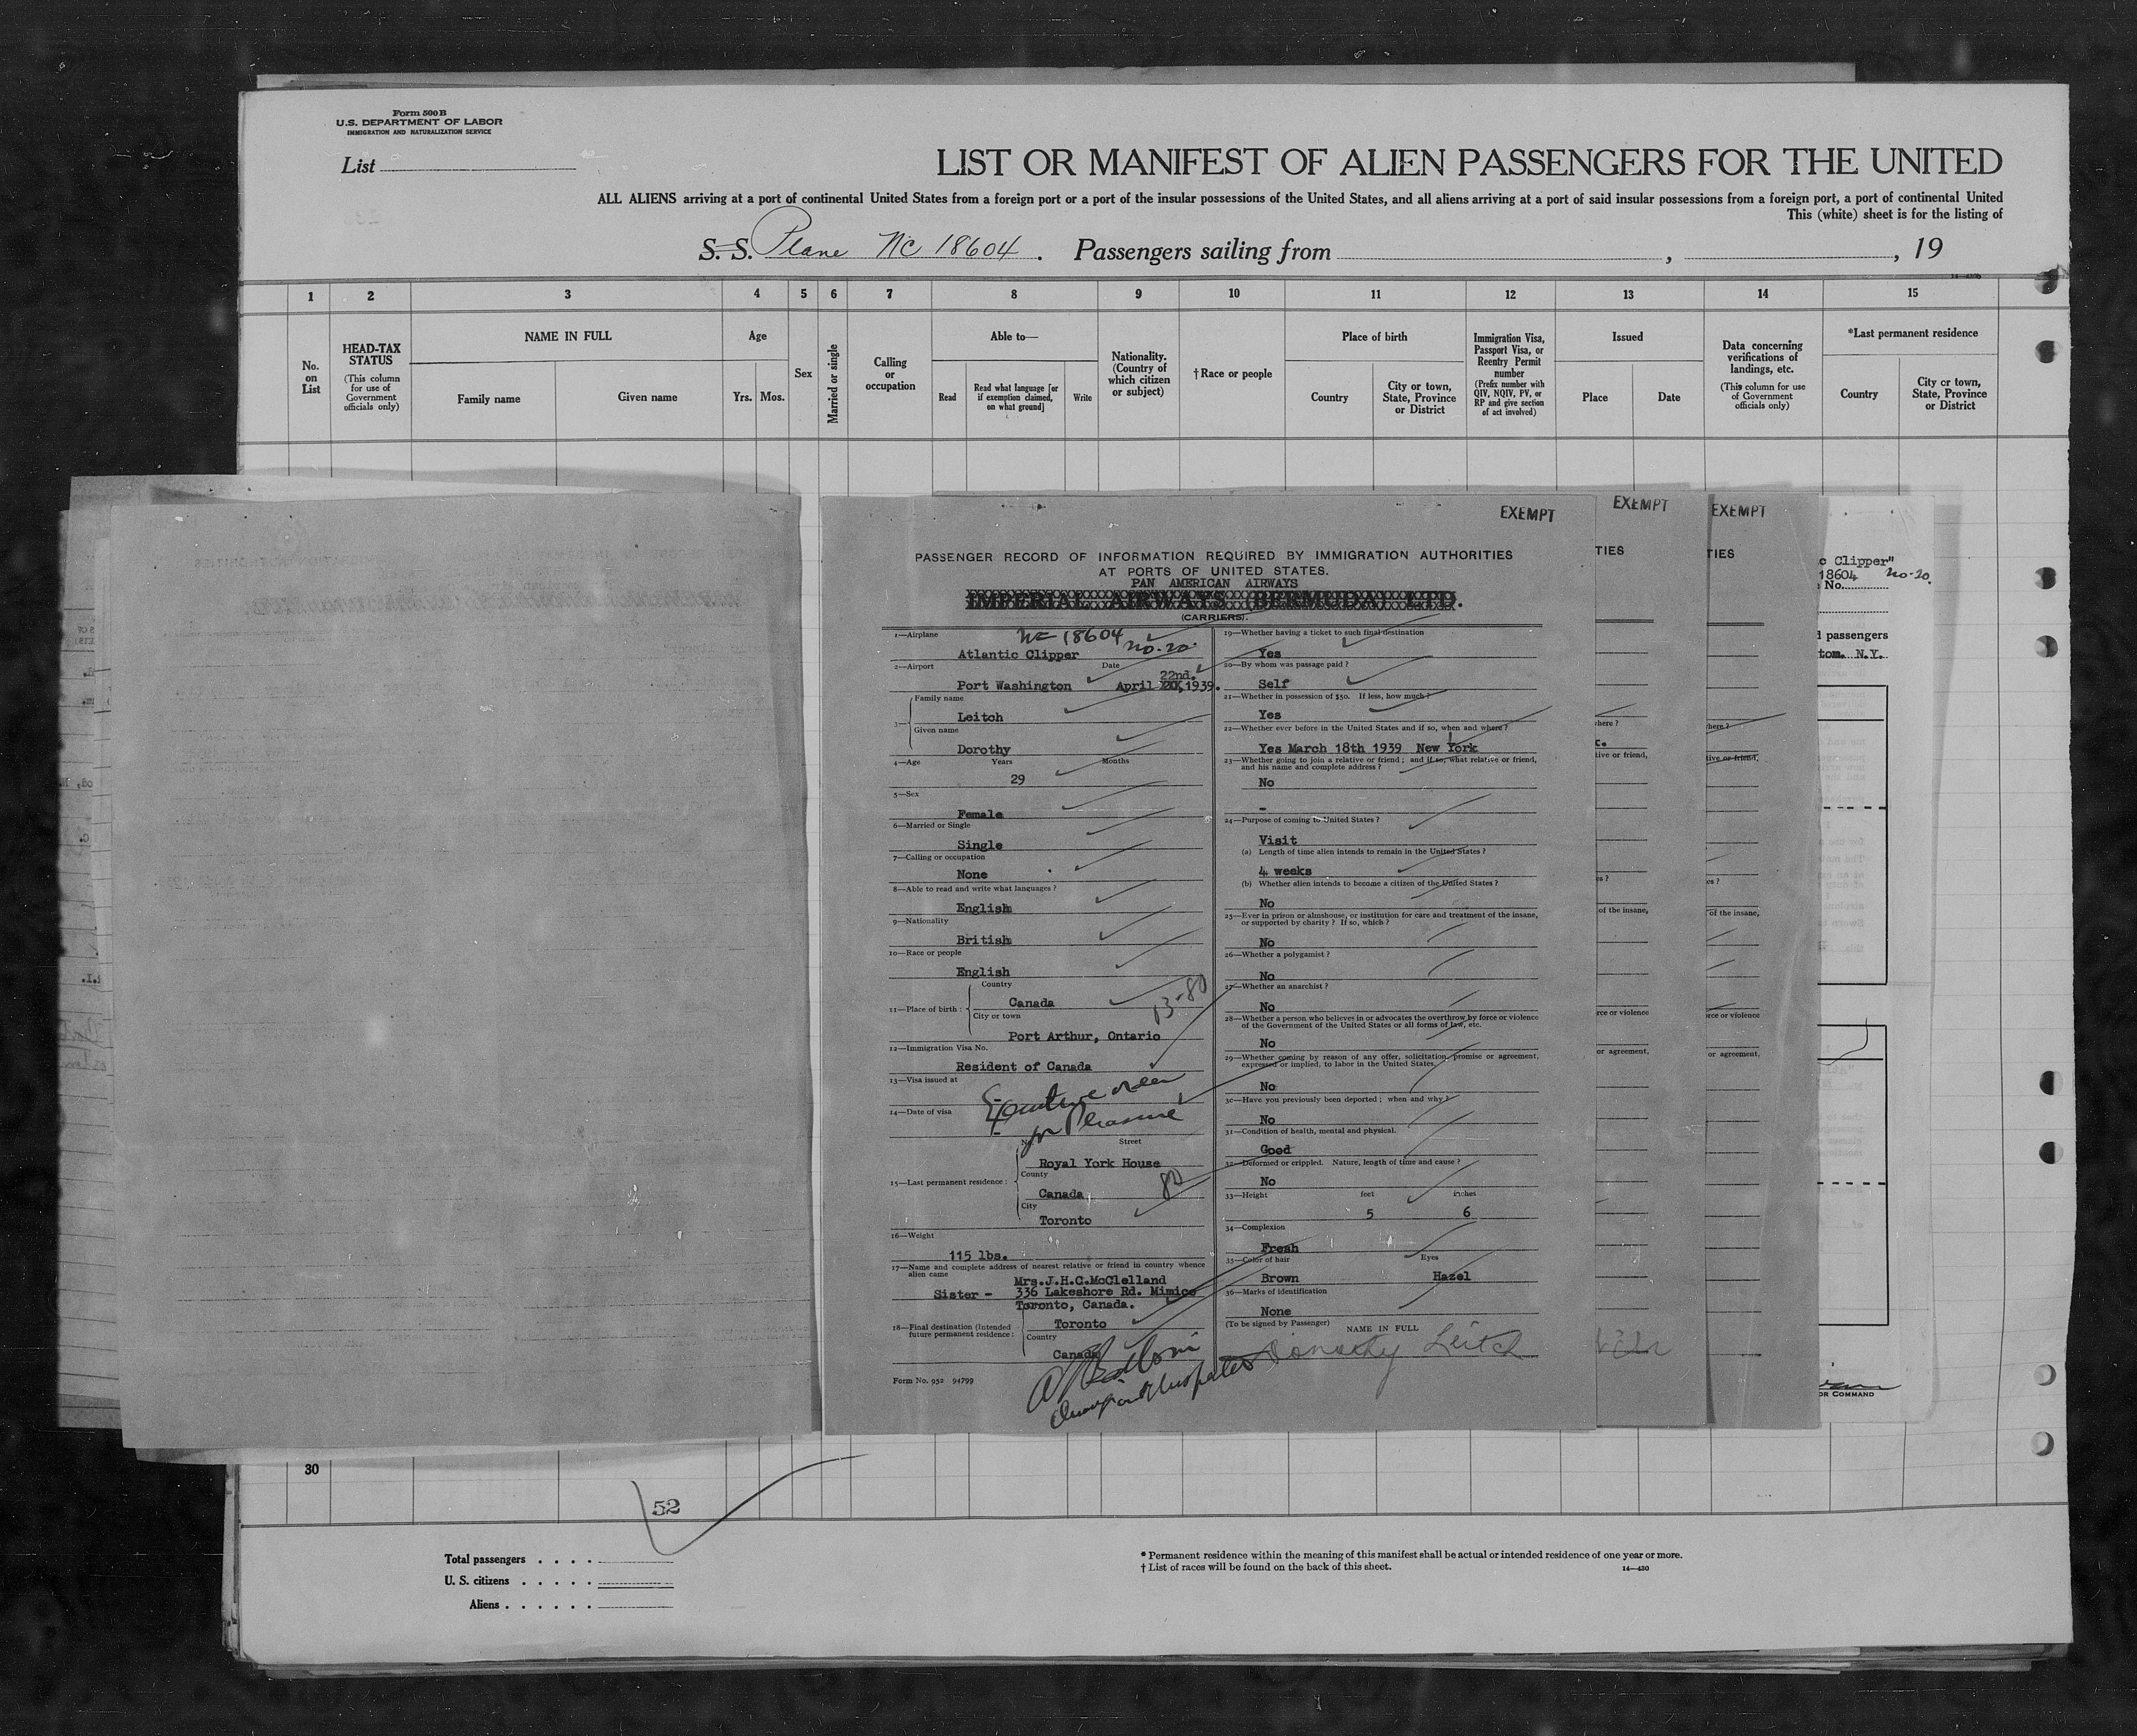 Form 500B
U.S. DEPARTMENT OF LABOR
IMMIGRATION AND NATURALIZATION SERVICE
List
LIST OR MANIFEST OF ALIEN PASSENGERS FOR THE UNITED
ALL ALIENS arriving at a port of continental United States from a foreign port or a port of the insular possessions of the United States, and all aliens arriving at a port of said insular possessions from a foreign port, a port of continental United
This (white) sheet is for the listing of
S. S. Plane NC 18604. Passengers sailing from , , 19
1 2 3 4 5 6 7 8 9 10 11 12 13 14 15
No. on List
HEAD-TAX STATUS
(This column for use of Government officials only)
NAME IN FULL
Family name
Given name
Age
Yrs. Mos.
Sex
Married or single
Calling or occupation
Able to—
Read
Read what language [or if exemption claimed, on what ground]
Write
Nationality. (Country of which citizen or subject)
† Race or people
Place of birth
Country
City or town, State, Province or District
Immigration Visa, Passport Visa, or Reentry Permit number
(Prefix number with QIV, NQIV, PV, or RP and give section of act involved)
Issued
Place
Date
Data concerning verifications of landings, etc.
(This column for use of Government officials only)
*Last permanent residence
Country
City or town, State, Province or District
EXEMPT
PASSENGER RECORD OF INFORMATION REQUIRED BY IMMIGRATION AUTHORITIES
AT PORTS OF UNITED STATES.
PAN AMERICAN AIRWAYS
IMPERIAL AIRWAYS (BERMUDA) LTD.
(CARRIERS).
1—Airplane
NC 18604
no. 20.
Atlantic Clipper
2—Airport
Date
22nd.
Port Washington April 1939.
3— Family name
Leitch
Given name
Dorothy
4—Age Years Months
29
5—Sex
Female
6—Married or Single
Single
7—Calling or occupation
None
8—Able to read and write what languages ?
English
9—Nationality
British
10—Race or people
English
11—Place of birth : Country
Canada
City or town
Port Arthur, Ontario
13-80
12—Immigration Visa No.
Resident of Canada
13—Visa issued at
Executive order
14—Date of visa
for Pleasure
No. Street
Royal York House
15—Last permanent residence :
County
Canada
80
City
Toronto
16—Weight
115 lbs.
17—Name and complete address of nearest relative or friend in country whence alien came
Mrs.J.H.C.McClelland
Sister - 336 Lakeshore Rd. Mimico
Toronto, Canada.
18—Final destination (Intended future permanent residence :
Toronto
Country
Canada
Form No. 952 94799
19—Whether having a ticket to such final destination
Yes
20—By whom was passage paid ?
Self
21—Whether in possession of $50. If less, how much ?
Yes
22—Whether ever before in the United States and if so, when and where ?
Yes March 18th 1939 New York
23—Whether going to join a relative or friend ; and if so, what relative or friend, and his name and complete address ?
No
-
24—Purpose of coming to United States ?
Visit
(a) Length of time alien intends to remain in the United States ?
4 weeks
(b) Whether alien intends to become a citizen of the United States ?
No
25—Ever in prison or almshouse, or institution for care and treatment of the insane, or supported by charity ? If so, which ?
No
26—Whether a polygamist ?
No
27—Whether an anarchist ?
No
28—Whether a person who believes in or advocates the overthrow by force or violence of the Government of the United States or all forms of law, etc.
No
29—Whether coming by reason of any offer, solicitation, promise or agreement, expressed or implied, to labor in the United States.
No
30—Have you previously been deported ; when and why ?
No
31—Condition of health, mental and physical.
Good
32—Deformed or crippled. Nature, length of time and cause ?
No
33—Height feet inches
5 6
34—Complexion
Fresh
35—Color of hair Eyes
Brown Hazel
36—Marks of identification
None
(To be signed by Passenger) NAME IN FULL
Dorothy Leitch
EXEMPT
TIES
here ?
tive or friend,
es ?
of the insane,
rce or violence
or agreement,
EXEMPT
TIES
here ?
tive or friend,
es ?
of the insane,
rce or violence
or agreement,
c Clipper"
18604 no-20.
No.
d passengers
tom. N.Y.
OR COMMAND
30
52
Total passengers
U. S. citizens
Aliens
* Permanent residence within the meaning of this manifest shall be actual or intended residence of one year or more.
† List of races will be found on the back of this sheet.
14—430